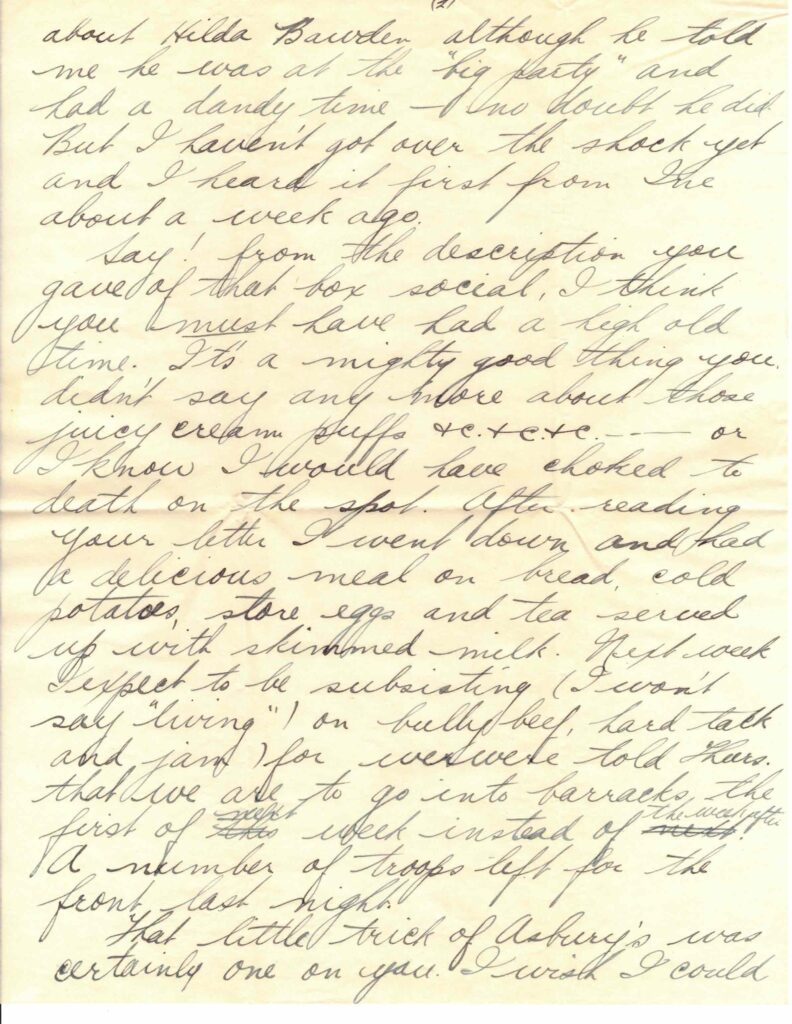 (2)
about Hilda Bawden although he told
me he was at the "big party" and
had a dandy time — no doubt he did.
But I haven't got over the shock yet
and I heard it first from Ine
about a week ago.
Say! from the description you
gave of that box social, I think
you must have had a high old
time. It's a mighty good thing you
didn't say any more about those
juicy cream puffs &c. &c. &c. — — or
I know I would have choked to
death on the spot. After reading
your letter I went down and had
a delicious meal on bread, cold
potatoes, store eggs and tea served
up with skimmed milk. Next week
I expect to be subsisting (I won't
say "living") on bully beef, hard tack
and jam) for we were told Thurs.
that we are to go into barracks the
first of this next week instead of next. the week after
A number of troops left for the
front last night.
That little trick of Asbury's was
certainly one on you. I wish I could